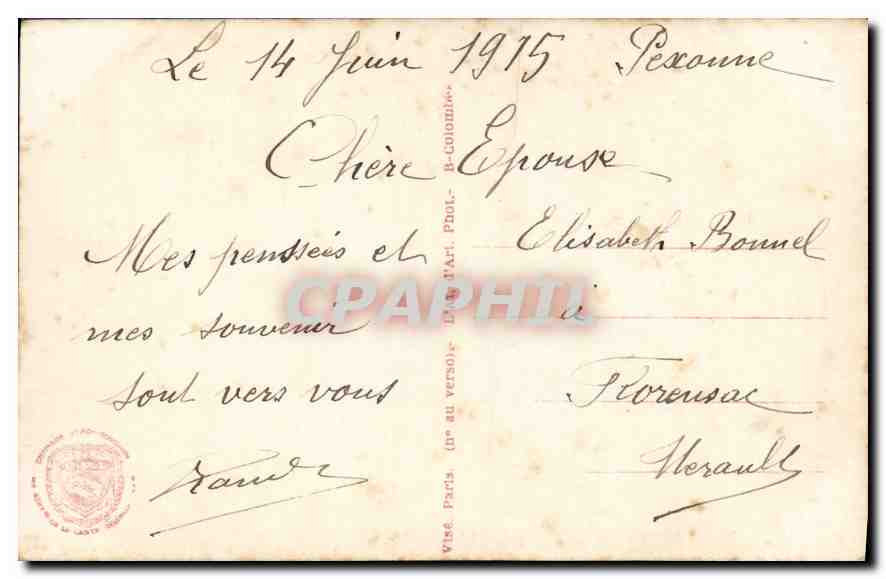 Le 14 Juin 1915 Pexonne
Chère Epouse
Mes penssées et
mes souvenir
sont vers vous
Elisabeth Bonnel
à
Florensac
Herault
Visé. Paris. (n° au verso).- L'At. d'Art. Phot.- B-Colombes
CPAPHIL